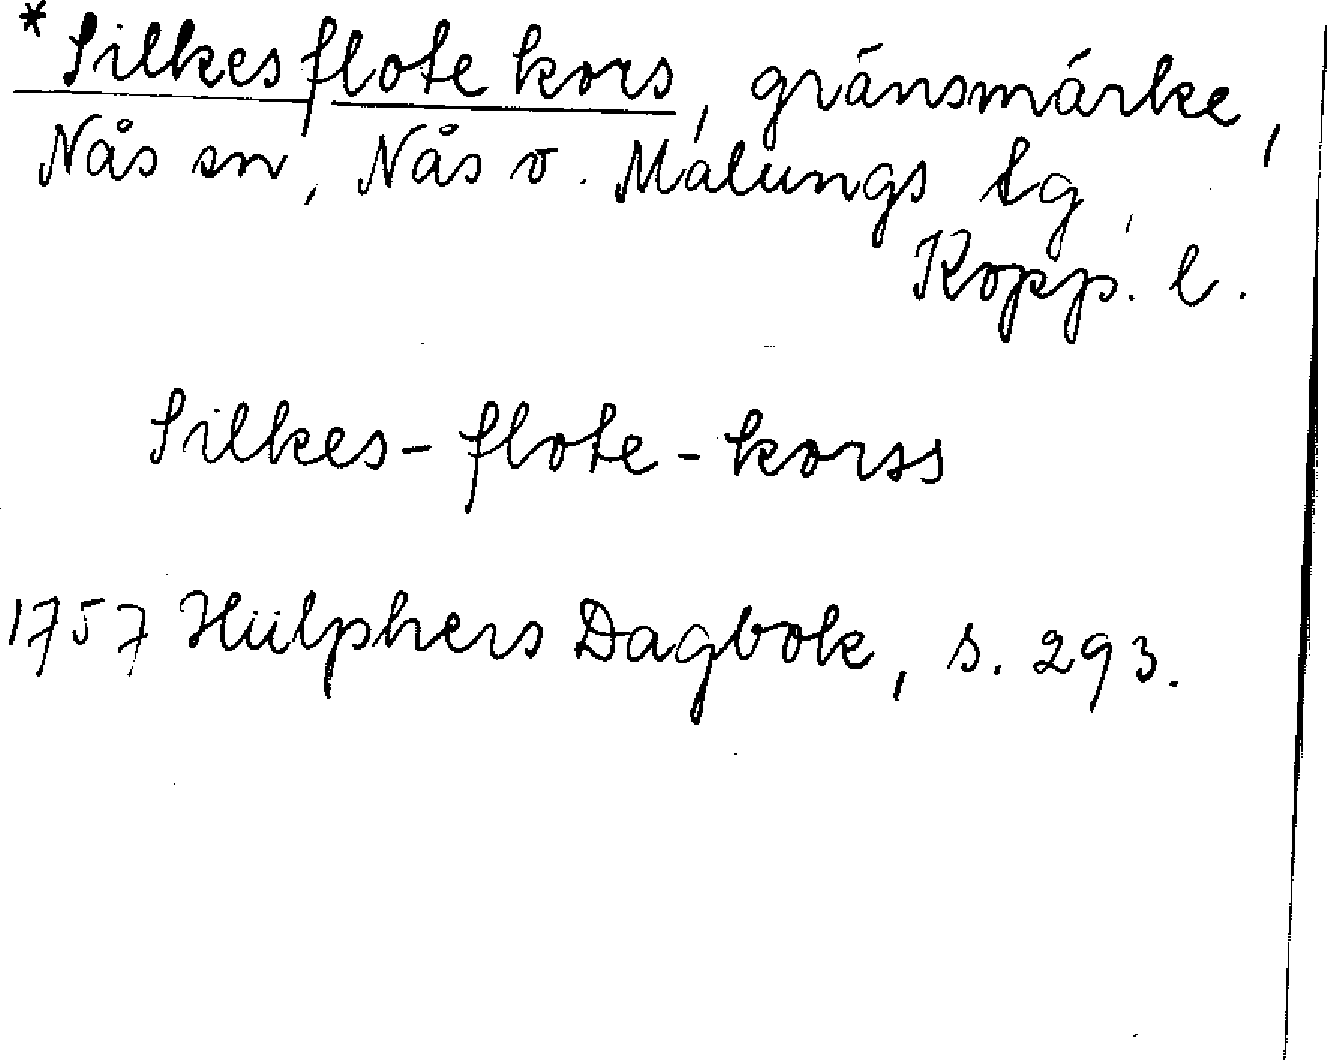 *Silkesflote kors, gränsmärke,
Nås sn, Nås o. Malungs tg,
Kopp. l.
Silkes-flote-korss
1757 Hülphers Dagbok, s. 293.